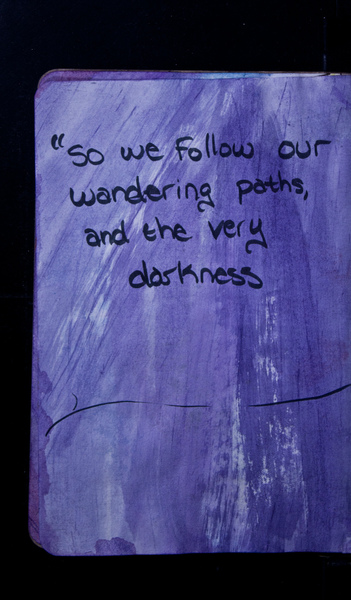 "So we follow our
wandering paths,
and the very
darkness